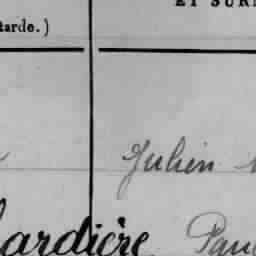 ET SUR
tarde.)
Julien
ardière Pau